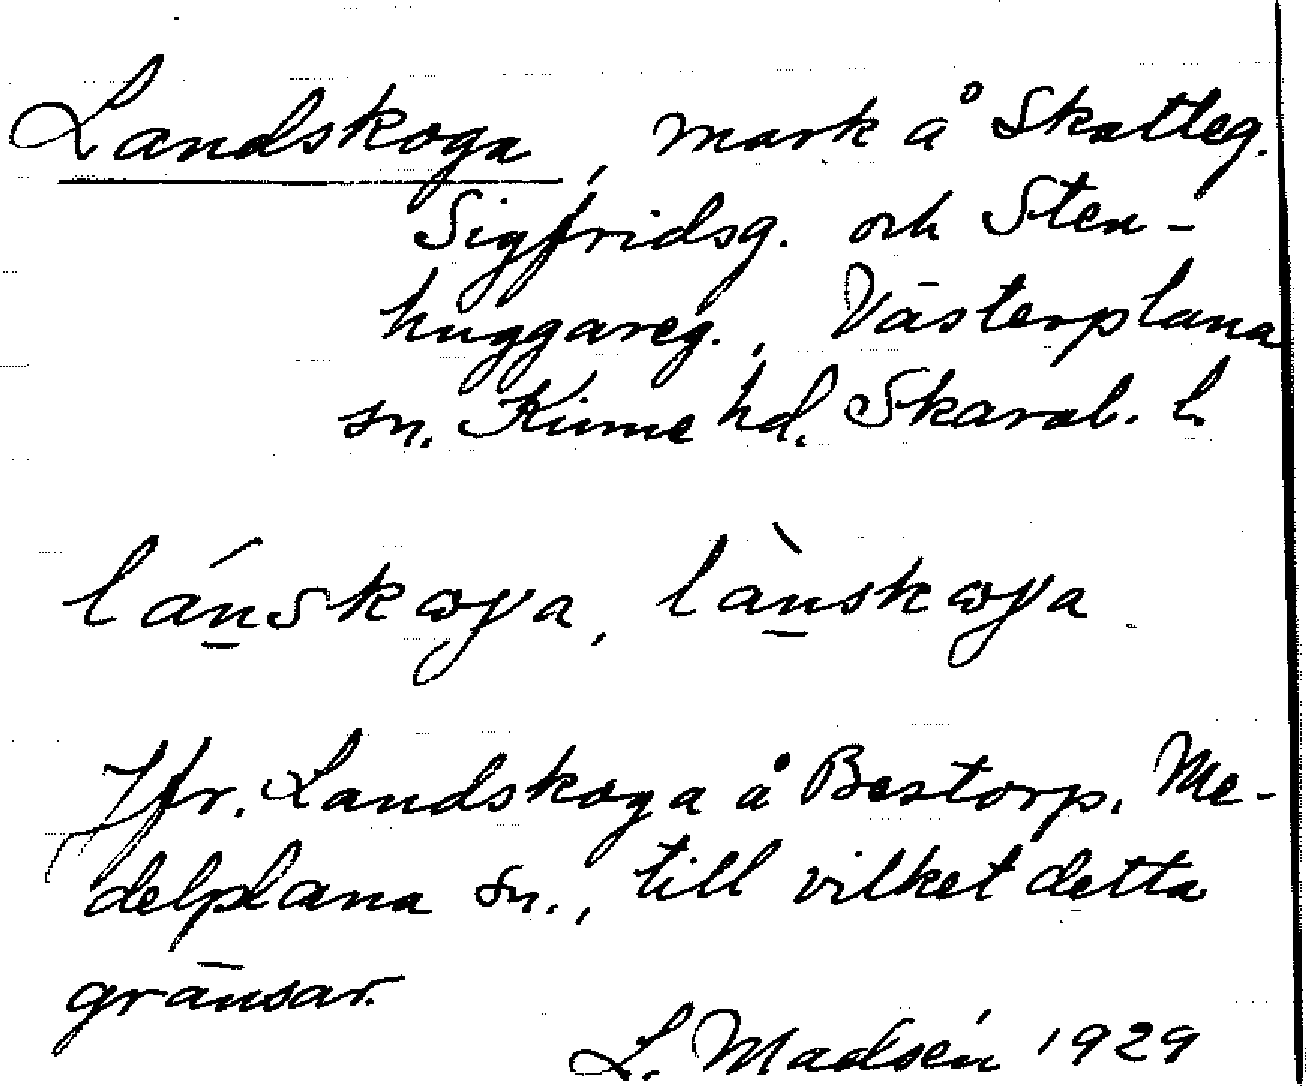 Landskoga, mark å Skatteg.
Sigfridsg. och Sten-
huggareg., Västerplana
sn. Kinne hd. Skarab. l.
lánskωγa, lànskωγa
Jfr. Landskoga å Bestorp, Me-
delplana sn., till vilket detta
gränsar.
L. Madsén 1929